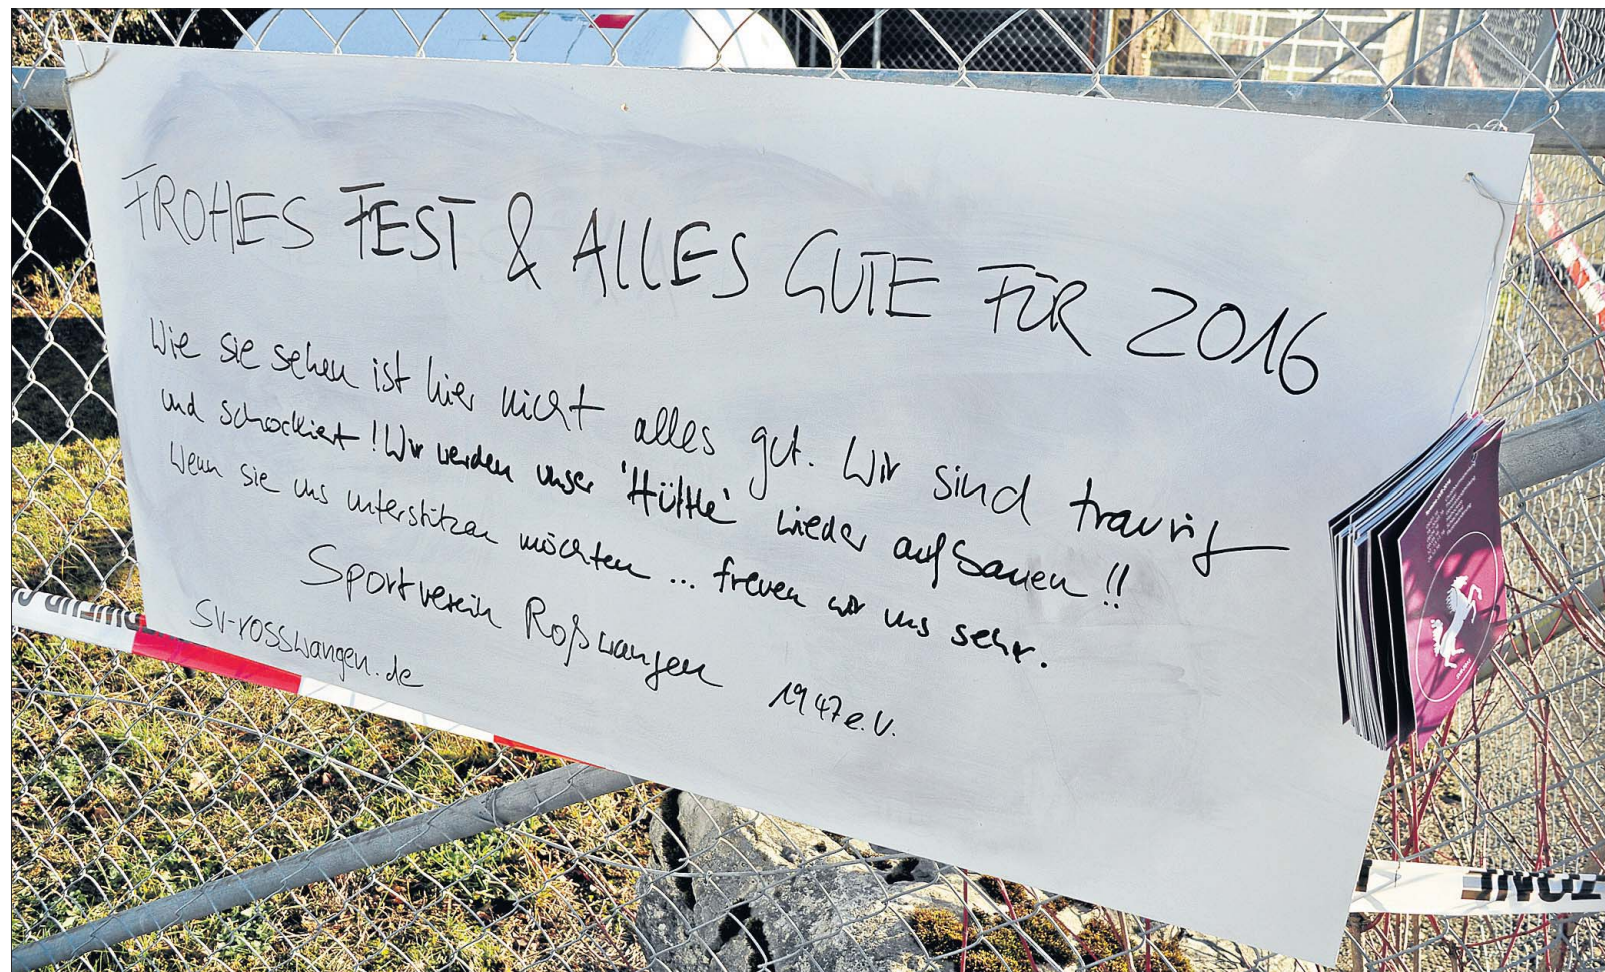 FROHES FEST & ALLES GUTE FÜR 2016
Wie sie sehen ist hier nicht alles gut. Wir sind traurig
und schockiert! Wir werden unser 'Hüttle' wieder aufbauen!!
Wenn sie uns unterstützen möchten ... freuen wir uns sehr.
Sportverein Roßwangen 1947 e.V.
sv-rosswangen.de